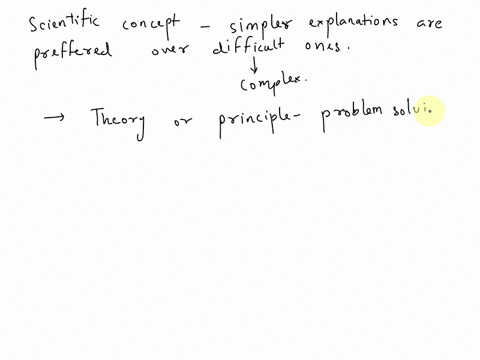 Scientific concept - simpler explanations are
preffered over difficult ones.
↓
complex.
→ Theory or principle- problem solvi.